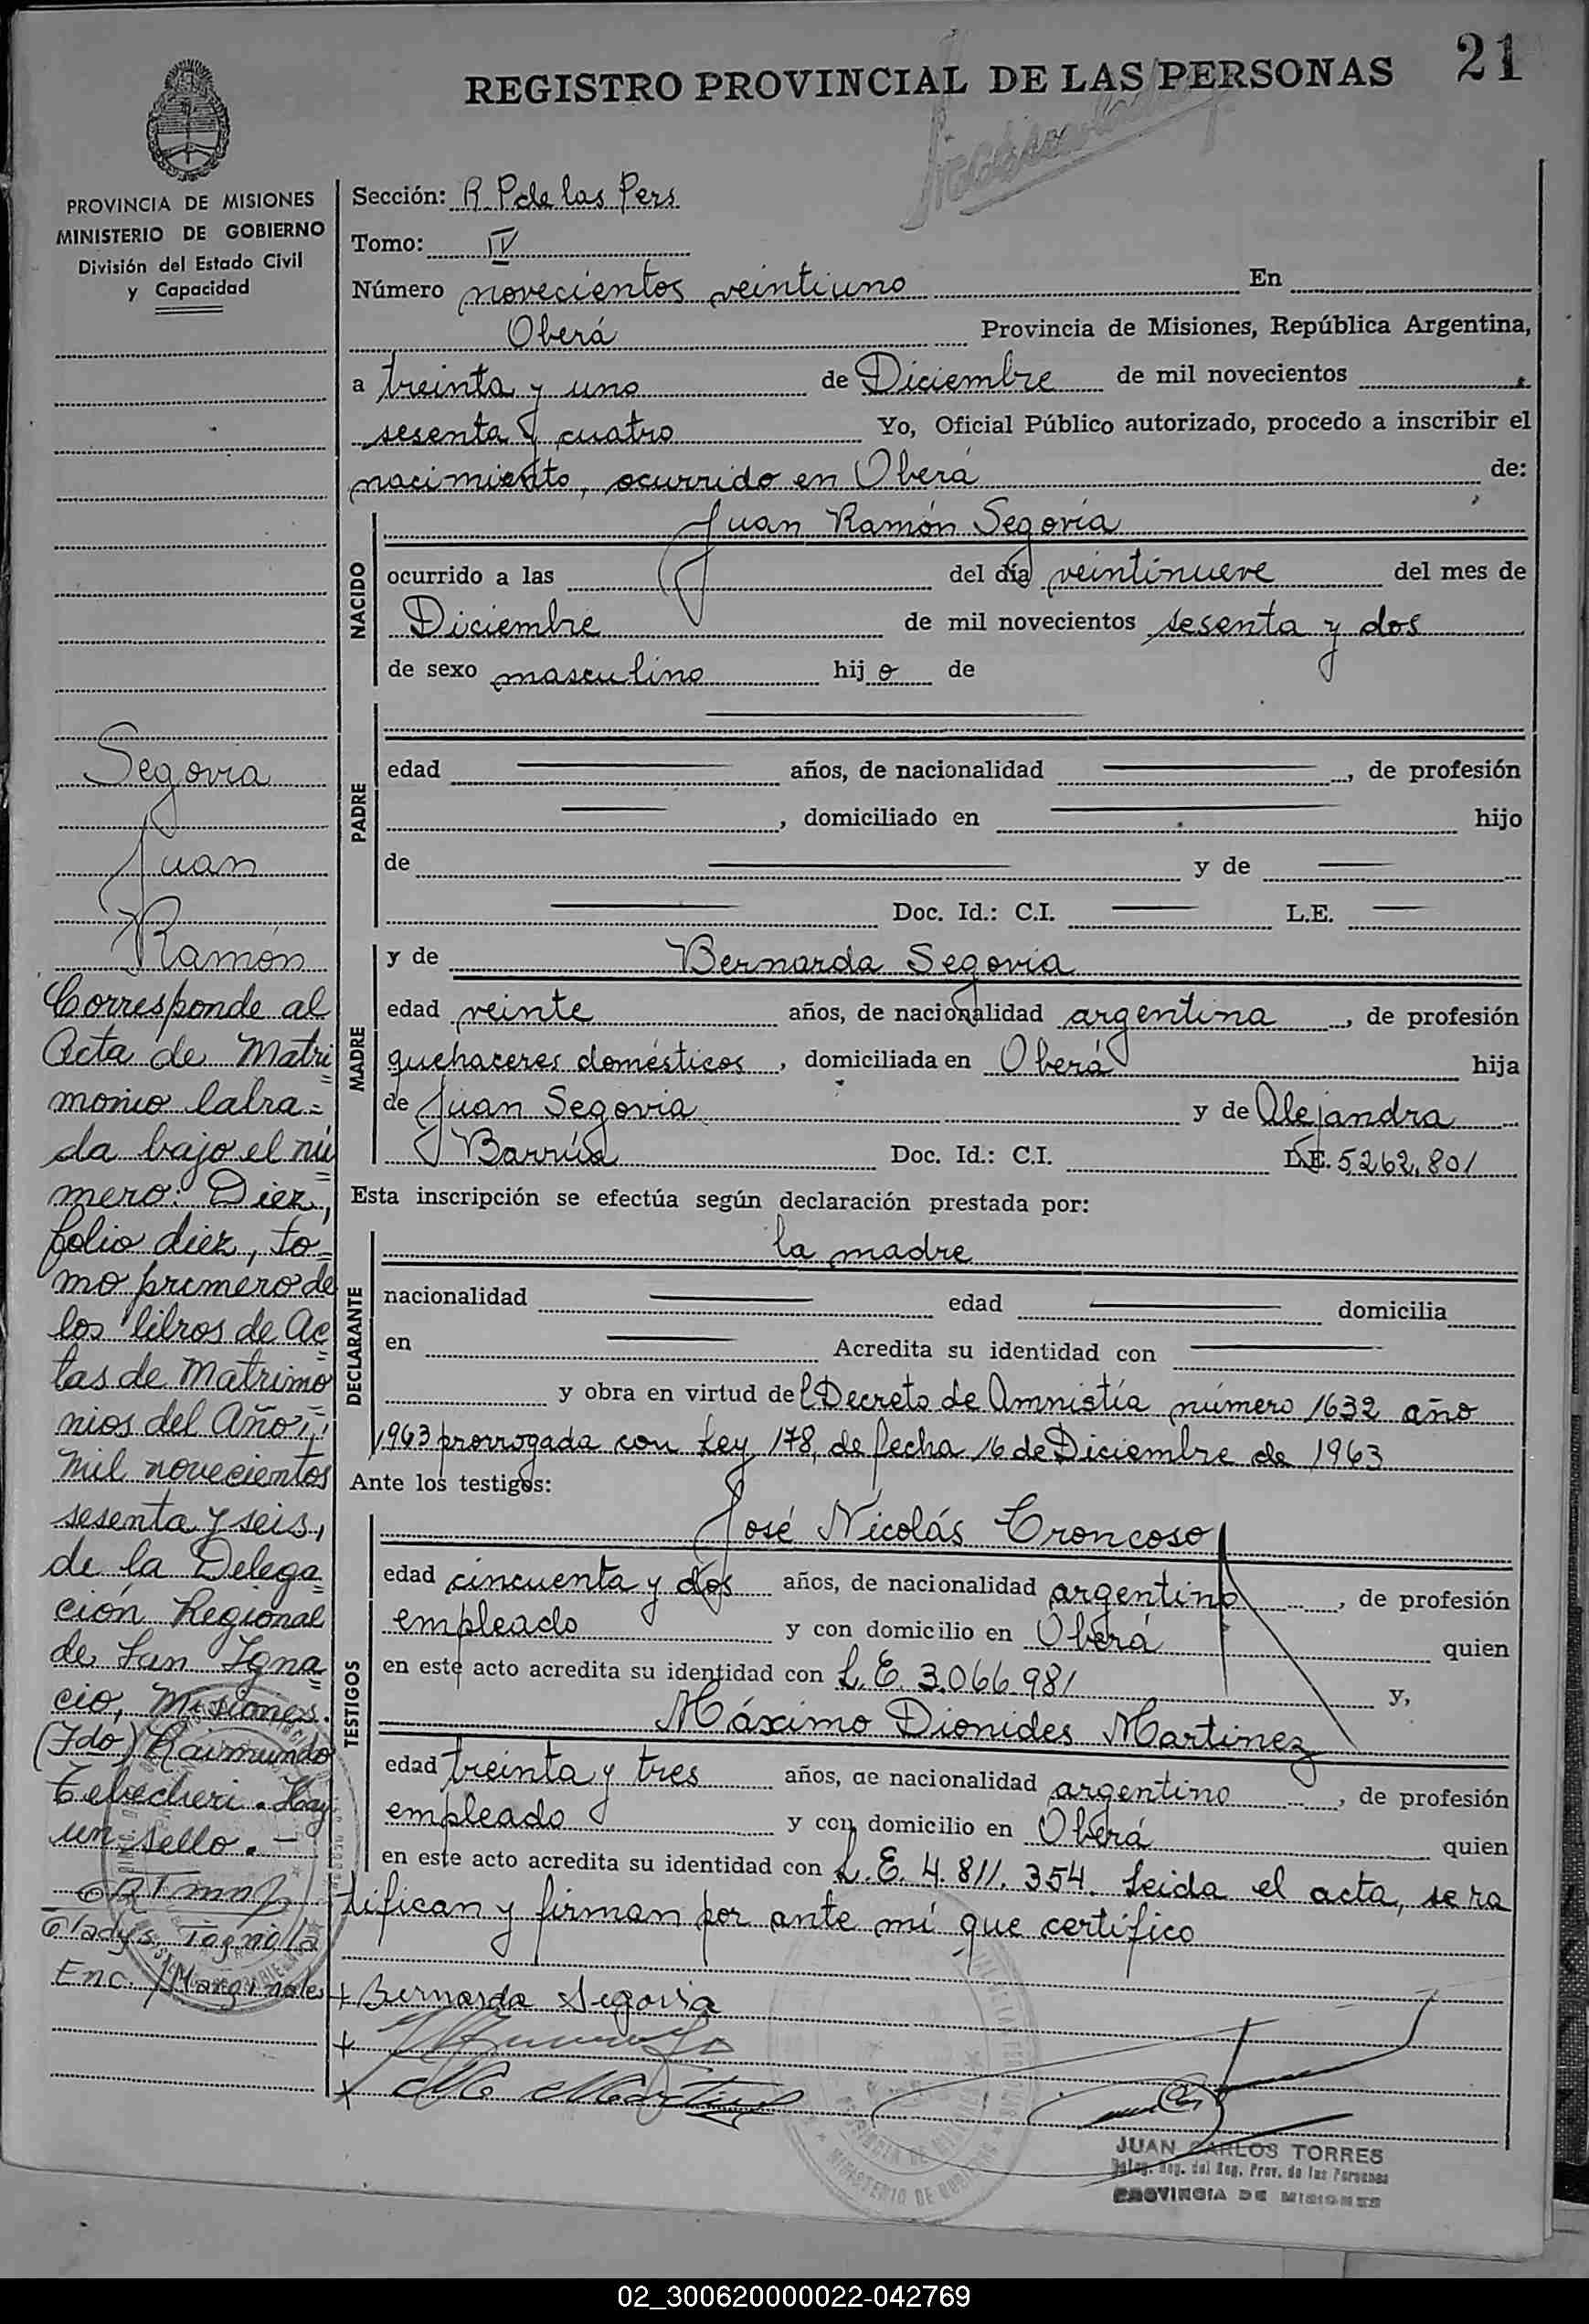 REGISTRO PROVINCIAL DE LAS PERSONAS 21
PROVINCIA DE MISIONES
MINISTERIO DE GOBIERNO
División del Estado Civil
y Capacidad
Segovia
Juan
Ramón
Corresponde al
Acta de Matri
monio labra=
da bajo el nú
mero: Diez,
folio diez, to=
mo primero de
los libros de Ac
tas de Matrimo
nios del Año
mil novecientos
sesenta y seis,
de la Delega
ción Regional
de San Igna
cio, Misiones.
(Fdo) Raimundo
Hay
un sello. -
Gladys
Enc. /Marginales
Sección: R. P. de las Pers
Tomo: IV
Número novecientos veintiuno En
Oberá Provincia de Misiones, República Argentina,
a treinta y uno de Diciembre de mil novecientos
sesenta y cuatro Yo, Oficial Público autorizado, procedo a inscribir el
nacimiento, ocurrido en Oberá de:
NACIDO
Juan Ramón Segovia
ocurrido a las del día veintinueve del mes de
Diciembre de mil novecientos sesenta y dos
de sexo masculino hijo de
PADRE
edad años, de nacionalidad , de profesión
, domiciliado en hijo
de y de
Doc. Id.: C.I. L.E.
MADRE
y de Bernarda Segovia
edad veinte años, de nacionalidad argentina , de profesión
quehaceres domésticos , domiciliada en Oberá hija
de Juan Segovia y de Alejandra
Doc. Id.: C.I. L.E. 5.262.801
Esta inscripción se efectúa según declaración prestada por:
DECLARANTE
la madre
nacionalidad edad domicilia
en Acredita su identidad con
y obra en virtud del Decreto de Amnistía número 1632 año
1963 prorrogada con Ley 178, de fecha 16 de Diciembre de 1963
Ante los testigos:
TESTIGOS
José Nicolás Troncoso
edad cincuenta y dos años, de nacionalidad argentino , de profesión
empleado y con domicilio en Oberá quien
en este acto acredita su identidad con L. E. 3.066.981 y,
Máximo Dionides Martinez
edad treinta y tres años, de nacionalidad argentino , de profesión
empleado y con domicilio en Oberá quien
en este acto acredita su identidad con L. E. 4.811.354. Leida el acta, se ra
tifican y firman por ante mí que certífico
+ Bernarda Segovia
+
+
JUAN CARLOS TORRES
Deleg. Reg. del Reg. Prov. de las Personas
PROVINCIA DE MISIONES
02_300620000022-042769